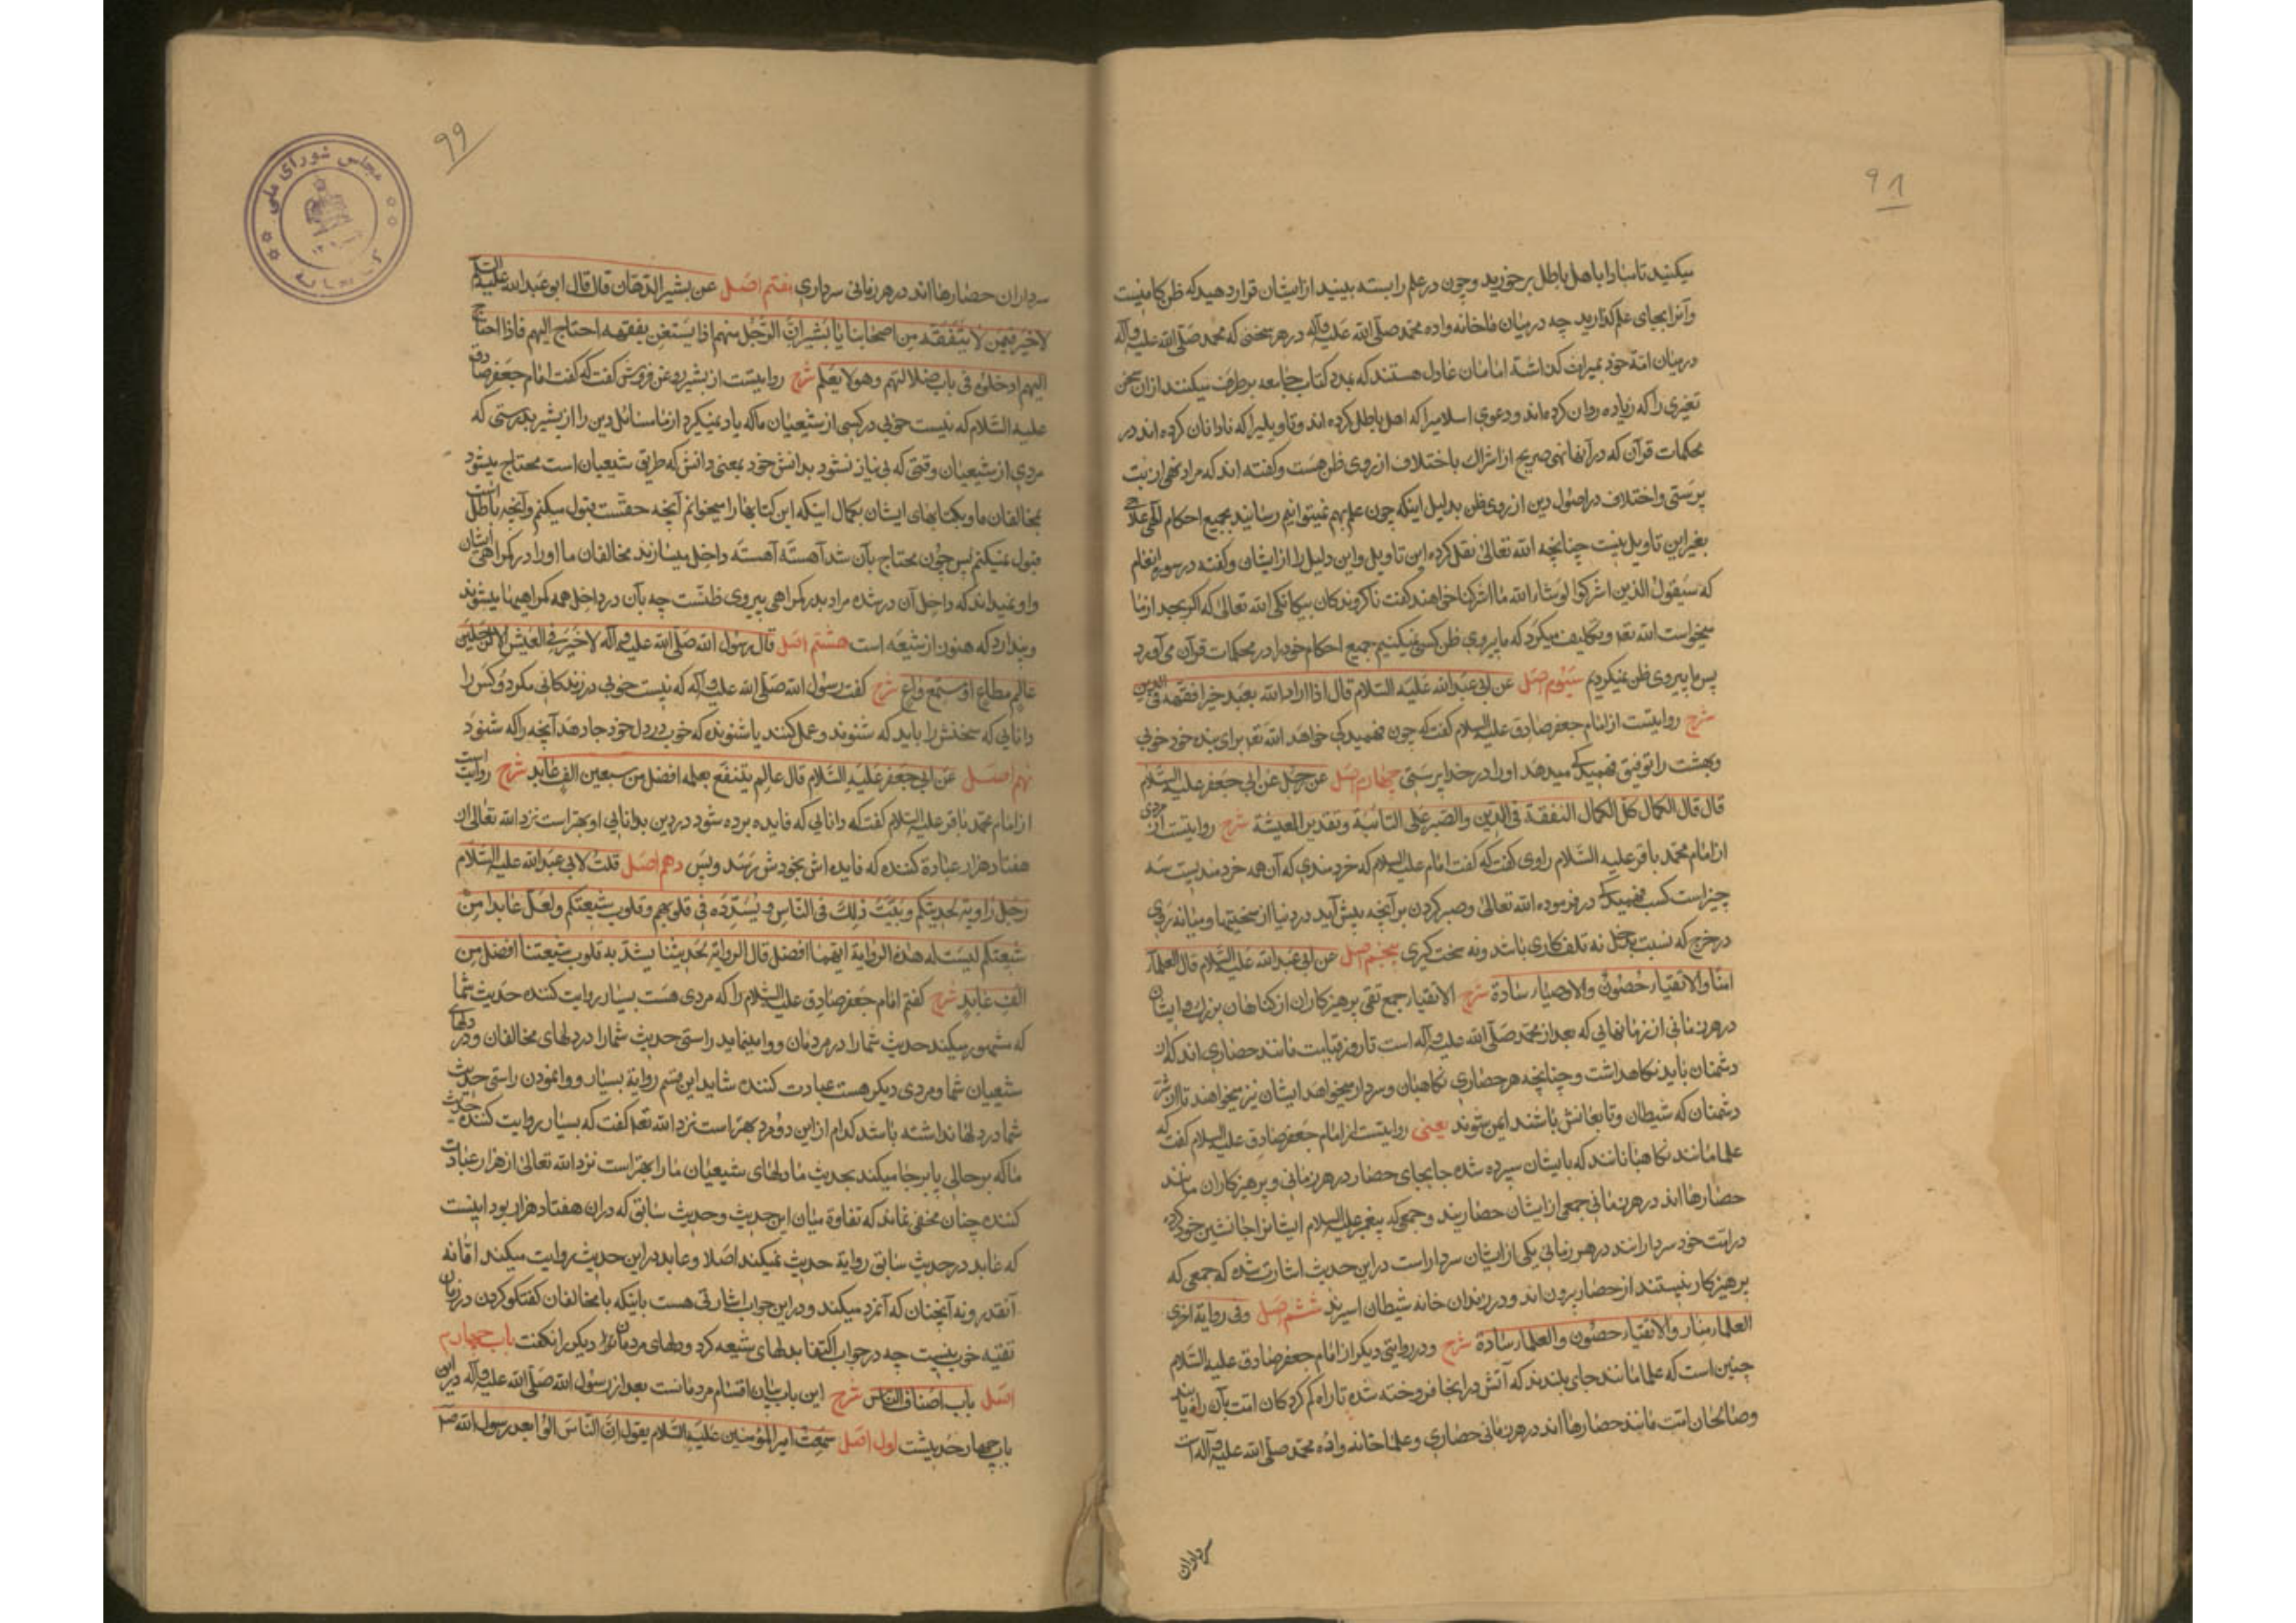 ۹۸
میکنید تا شما را با اهل باطل برخورید و چون در علم رابسته بینید از ایشان قرار دهید که ظن کافیست
و آنرا بجای علم گذارید چه در میان ما خانه‌واده محمد صلّی الله علیه وآله در هر سخنی که محمد صلّی الله علیه وآله
در میان امة خود بمیراث گذاشته امامان عادل هستند که بمدد کتاب جامعه برطرف میکنند از آن سخن
تغیری را که زیاده روان کرده‌اند و دعوی اسلامیرا که اهل باطل کرده اند و تاویلیرا که نادانان کرده اند در
محکمات قرآن که در آنها نهی صریح از اشراک باختلاف از روی ظن هست و گفته اند که مراد نهی از بت
پرستی و اختلاف در اصول دین از روی ظن بدلیل اینکه چون علم بهم نمیتوانیم رسانید بجمیع احکام الهی علاج
بغیر این تاویل نیست چنانچه الله تعالی نقل کرده این تاویل و این دلیل را از ایشان و گفته در سوره انعام
که سیقول الذین اشرکوا لو شاء الله ما اشرکنا خواهند گفت ناگروندگان بیگانگی الله تعالی که اگر بجد از ما
میخواست الله تعه و تکلیف میکرد که ما پیروی ظن کسی نمیکنیم جمیع احکام خود را در محکمات قرآن می‌آورد
پس ما پیروی ظن نمیکردیم سیّوم اصل عن ابی عبدالله علیه السّلام قال اذا اراد الله بعبد خیرا فقهه فی الدین
شرح روایتست از امام جعفر صادق علیه السلام گفت که چون خواهد الله تعه برای بنده خود خوبی
و بهشت را توفیق فهمیدگی میدهد او را در خدا پرستی چهارم اصل عن رجل عن ابی جعفر علیه السّلام
قال قال الکمال کل الکمال التفقه فی الدّین والصّبر علی النائبة وتقدیر المعیشة شرح روایتست از مردی
از امام محمّد باقر علیه السّلام راوی گفت که گفت امام علیه السلام که خردمندی که آن همه خردمندیست سه
چیز است کسب فهمیدگی در فرموده الله تعالی و صبر کردن بر آنچه پیش آید در دنیا از سختیها و میانه روی
در خرج که نسبت بدخل نه تلف کاری باشد و نه سخت گیری پنجم اصل عن ابی عبدالله علیه السّلام قال العلماء
امناء والاتقیاء حصون والاوصیاء سادة شرح الاتقیاء جمع تقی پرهیزکاران از گناهان بزرگ و ایشان
در هر زمانی از زمانهایی که بعد از محمّد صلّی الله علیه وآله است تا روز قیامت مانند حصاری اند که از
دشمنان باید نگاهداشت و چنانچه هر حصاری نگاهبان و سردار میخواهد ایشان نیز میخواهند تا از شر
دشمنان که شیطان و تابعانش باشند ایمن شوند یعنی روایتست از امام جعفر صادق علیه السلام گفت که
علما مانند نگاهبانانند که بایشان سپرده شده جابجای حصار در هر زمانی و پرهیزکاران مانند
حصارها اند در هر زمانی جمعی از ایشان حصارند و جمعی که پیغمبر علیه السلام ایشانرا جانشین خود کرده
در امت خود سردارانند در هر زمانی یکی از ایشان سردار است در این حدیث اشارت شده که جمعی که
پرهیزکار نیستند از حصار برون اند و در زندان خانه شیطان اسیرند ششم اصل وفی روایة اخری
العلماء منار والاتقیاء حصون والعلماء سادة شرح و در روایتی دیگر از امام جعفر صادق علیه السّلام
چنین است که علما مانند جای بلندند که آتش در آنجا افروخته شده تا راه گم کردگان امت بآن راه یابند
و صالحان امت مانند حصارها اند در هر زمانی حصاری و علما خانه واده محمّد صلّی الله علیه وآله است
سرداران
۹۹
مجلس شورای ملی
کتابخانه
سرداران حصارها اند در هر زمانی سرداری هفتم اصل عن بشیر الدّهان قال قال ابو عبدالله علیه السلام
لا خیر فیمن لا یتفقه من اصحابنا یا بشیر انّ الرّجل منهم اذا لم یستغن بفقهه احتاج الیهم فاذا احتاج
الیهم ادخلوه فی باب ضلالتهم وهو لا یعلم شرح روایتست از بشیر روغن فروش گفت که گفت امام جعفر صادق
علیه السّلام که نیست خوبی در کسی از شیعیان ما که یاد نمیگیرد از ما مسائل دین را از بشیر بدرستی که
مردی از شیعیان وقتی که بی نیاز نشود بدانش خود بمعنی دانش که طریق شیعیان است محتاج میشود
بمخالفان ما و بکتابهای ایشان بکمال اینکه این کتابها را میخوانم آنچه حقست قبول میکنم و آنچه باطل است
قبول نمیکنم پس چون محتاج بآن شد آهسته آهسته داخل میسازند مخالفان ما او را در گمراهی ایشان
و او نمیداند که داخل آن در شده مراد بدر گمراهی پیروی ظنّست چه بآن در داخل همه گمراهیها میشوند
و پندارد که هنوز از شیعه است هشتم اصل قال رسول الله صلّی الله علیه وآله لا خیر فی العیش الا لرجلین
عالم مطاع او مستمع واع شرح گفت رسول الله صلّی الله علیه وآله که نیست خوبی در زندگانی مگر دو کس را
دانایی که سخنش را باید که شنوند و عمل کنند یا شنونده که خوب در دل خود جا دهد آنچه را که شنود
نهم اصل عن ابی جعفر علیه السّلام قال عالم ینتفع بعلمه افضل من سبعین الف عابد شرح روایت است
از امام محمّد باقر علیه السلام گفت که دانایی که فایده برده شود در دین بدانایی او بهتر است نزد الله تعالی از
هفتاد هزار عبادة کننده که فایده اش بخودش رسد و بس دهم اصل قلت لابی عبدالله علیه السّلام
رجل راویة لحدیثکم ویبثّ ذلک فی الناس و یسدّده فی قلوبهم وقلوب شیعتکم ولعلّ عابدا من
شیعتکم لیست له هذه الروایة ایّهما افضل قال الروایة لحدیثنا یشدّ به قلوب شیعتنا افضل من
الف عابد شرح گفتم امام جعفر صادق علیه السّلام را که مردی هست بسیار روایت کننده حدیث شما
که مشهور میکند حدیث شما را در مردمان و وامینماید راستی حدیث شما را در دلهای مخالفان و در دلهای
شیعیان شما و مردی دیگر هست عبادت کننده شاید این قسم روایة بسیار و وانمودن راستی حدیث
شما در دلها نداشته باشد کدام از این دو مرد بهتر است نزد الله تعه گفت که بسیار روایت کننده حدیث
ما که بر جای پا برجا میکند بحدیث ما دلهای شیعیان ما را بهتر است نزد الله تعالی از هزار عبادت
کننده چنان مخفی نماند که تفاوة میان این حدیث و حدیث سابق که در آن هفتاد هزار بود اینست
که عابد در حدیث سابق روایة حدیث نمیکند اصلا و عابد در این حدیث روایت میکند امّا نه
آنقدر و نه آنچنان که آنمرد میکند و در این جواب اشارتی هست باینکه با مخالفان گفتگو کردن در زمان
تقیّه خوب نیست چه در جواب اکتفا بدلهای شیعه کرد و دلهای مردمان دیگر را نگفت باب چهارم
اصل باب اصناف الناس شرح این باب بیان اقسام مردمانست بعد از رسول الله صلّی الله علیه وآله در این
باب چهار حدیثست اول اصل سمعت امیر المؤمنین علیه السّلام یقول انّ النّاس آلوا بعد رسول الله ص